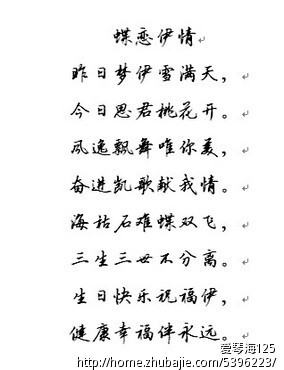 蝶恋伊情
昨日梦伊雪满天，
今日思君桃花开。
风逸飘舞唯你美，
奋进凯歌献我情。
海枯石难蝶双飞，
三生三世不分离。
生日快乐祝福伊，
健康幸福伴永远。
爱琴海125
http://home.zhubajie.com/5396223/